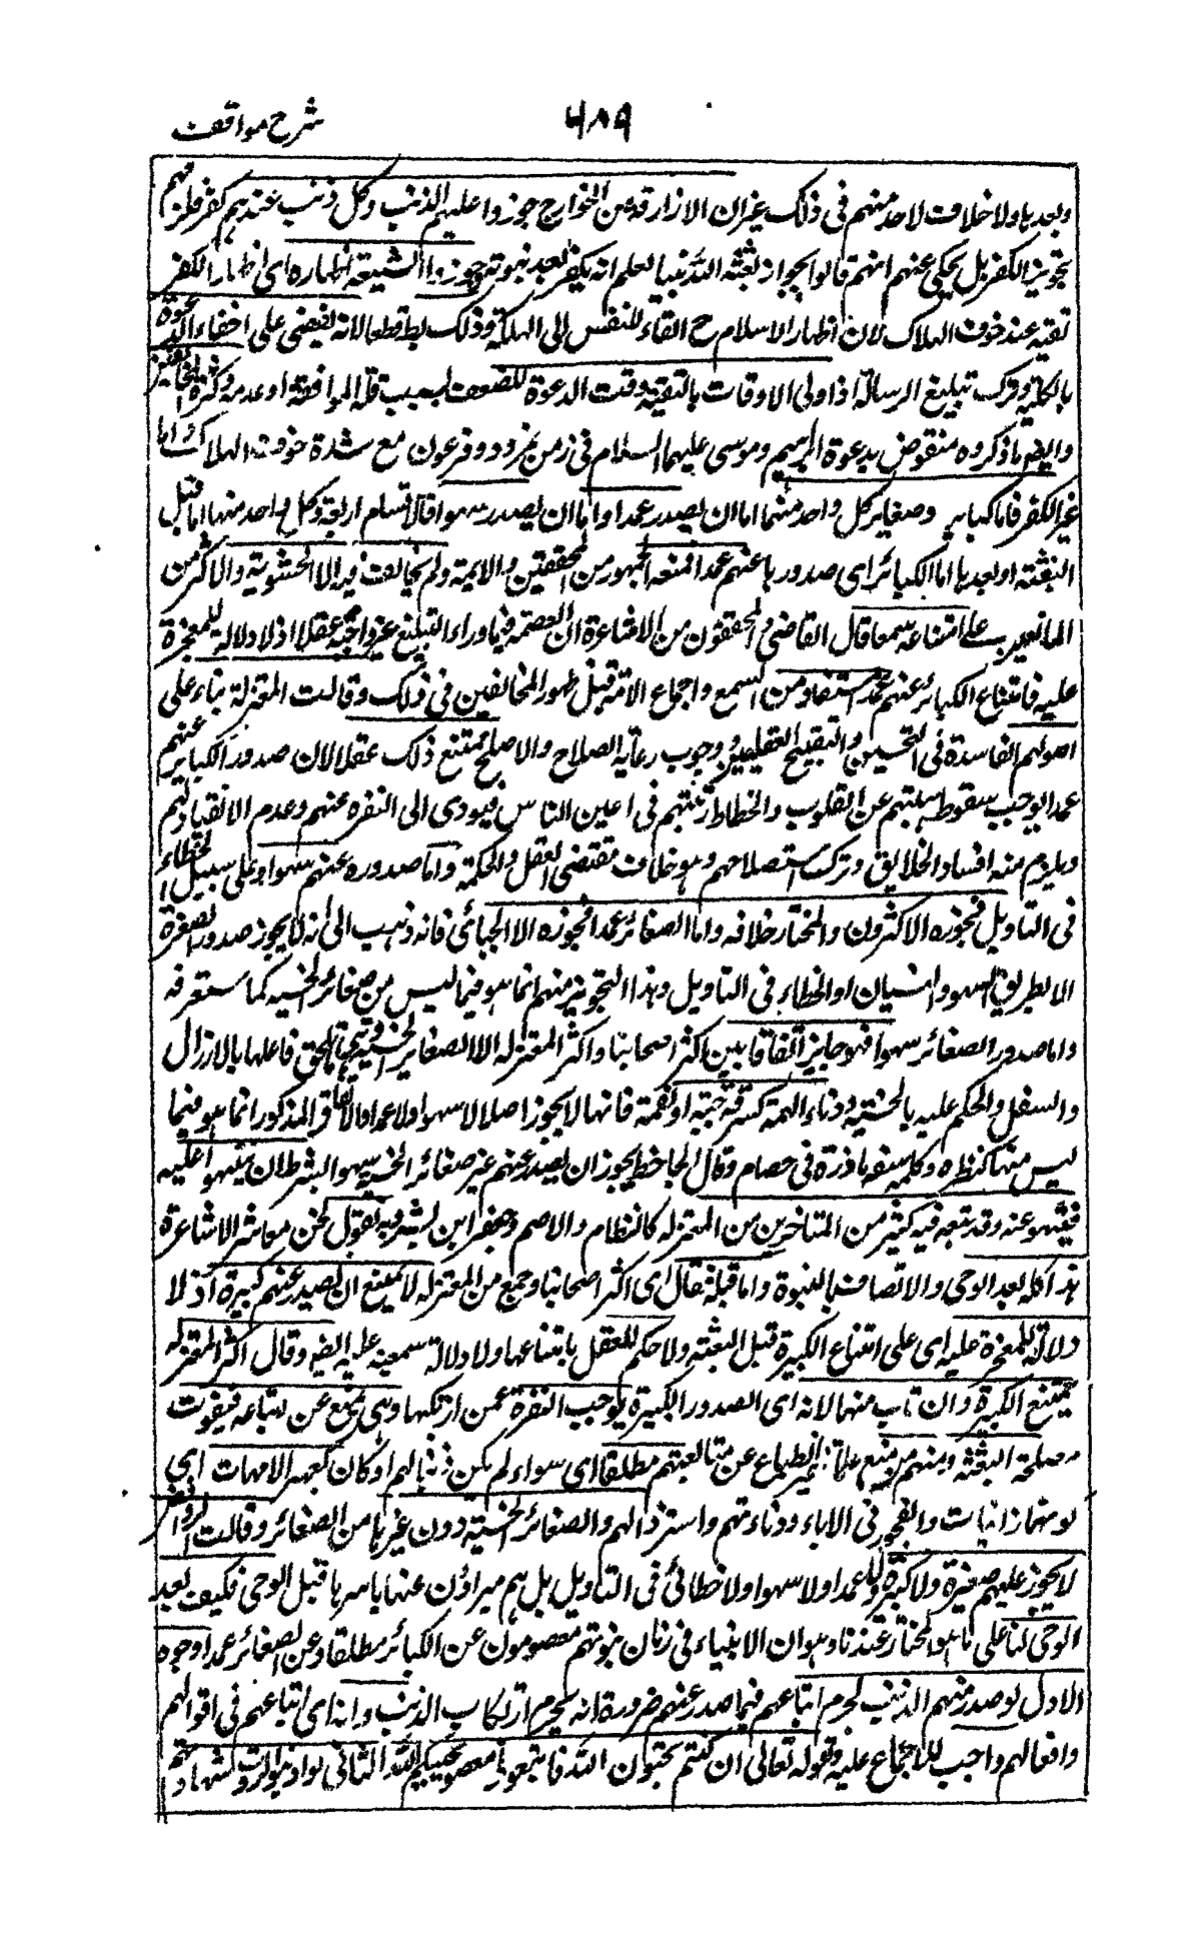 شرح مواقف
٦٨٩
وبعدها ولا خلاف لاحد منهم فى ذلك غير ان الازارقة من الخوارج جوزوا عليهم الذنب وكل ذنب عندهم كفر فلزمهم
تجويز الكفر بل يحكى عنهم انهم قالوا بجواز بعثة نبيا لعلم الله انه يكفر بعد نبوته وجوز الشيعة اظهاره اى اظهار الكفر
تقية عند خوف الهلاك لان اظهار الاسلام ح القاء للنفس الى التهلكة وذلك بط قطعا لانه يفضى الى اخفاء الدعوة
بالكلية وترك تبليغ الرسالة اذ اولى الاوقات بالتقية وقت الدعوة للضعف بسبب قلة الموافقة او عدمه وكثرة المخالفين
وايضا ما ذكروه منقوض بدعوة ابراهيم وموسى عليهما السلام فى زمن نمرود وفرعون مع شدة خوف الهلاك واما
غير الكفر فاما كباير وصغاير كل واحد منهما اما ان يصدر عمدا واما ان يصدر سهوا فالاقسام اربعة وكل واحد منها اما قبل
البعثة او بعدها اما الكبائر اى صدورها عنهم عمدا فمنعه الجمهور من المحققين والايمة ولم يخالف فيه الا الحشوية والاكثر من
المانعين على امتناعه سمعا قال القاضى والمحققون من الاشاعرة ان العصمة فيما وراء التبليغ غير واجبة عقلا اذ لا دلالة للمعجزة
عليه فامتناع الكبائر عنهم عمدا مستفاد من السمع واجماع الامة قبل ظهور المخالفين فى ذلك وقالت المعتزلة بناء على
اصولهم الفاسدة فى التحسين والتقبيح العقليين ووجوب رعاية الصلاح والاصلح يمتنع ذلك عقلا لان صدور الكباير عنهم
عمدا يوجب سقوط هيبتهم عن القلوب وانحطاط رتبتهم فى اعين الناس فيودى الى النفرة عنهم وعدم الانقياد لهم
ويلزم منه افساد الخلايق وترك استصلاحهم وهو خلاف مقتضى العقل والحكمة واما صدوره عنهم سهوا او على سبيل الخطاء
فى التاويل فجوزه الاكثرون والمختار خلافه واما الصغائر عمدا فجوزه الا الجبائى فانه ذهب الى انه لا يجوز صدور الصغيرة
الا بطريق السهو والنسيان او الخطاء فى التاويل وهذا التجويز منهم انما هو فيما ليس من صغائر الخسية كما ستعرفه
واما صدور الصغائر سهوا فهو جايز اتفاقا بين اكثر اصحابنا واكثر المعتزلة الا الصغاير الخسية وهى ما يلحق فاعلها بالارزال
والسفل والحكم عليه بالخسة ودناءة الهمة كسرقة حبة او لقمة فانها لا يجوز اصلا لا سهوا ولا عمدا والاتفاق المذكور انما هو فيما
ليس منها كنظرة وكلمة سفه نادرة فى خصام وقال الجاحظ يجوز ان يصدر عنهم غير صغائر الخسة سهوا بشرط ان ينبهوا عليه
فينتهوا عنه وقد تبعه فيه كثير من المتاخرين من المعتزلة كالنظام والاصم وجعفر ابن بشر وبه نقول نحن معاشر الاشاعرة
هذا كله بعد الوحى والاتصاف بالنبوة واما قبله فقال اى اكثر اصحابنا وجمع من المعتزلة لا يمتنع ان يصدر عنهم كبيرة اذ لا
دلالة للمعجزة عليه اى على امتناع الكبيرة قبل البعثة ولا حكم للعقل بامتناعها ولا دلالة سمعية عليه ايضا وقال اكثر المعتزلة
يمتنع الكبيرة وان تاب منها لانه اى الصدور الكبيرة يوجب النفرة عمن ارتكبها وهى تمنع عن اتباعه فيفوت
مصلحة البعثة ومنهم من منع عما ينفر الطباع عن متابعتهم مطلقا اى سواء لم يكن ذنبا لهم او كان كعهر الامهات اى
كونها زانيات والفجور فى الاباء ودناءتهم واسترذالهم والصغائر الخسية دون غيرها من الصغائر وقالت الروافض
لا يجوز عليهم صغيرة ولا كبيرة لا عمدا ولا سهوا ولا خطائى فى التاويل بل هم مبراؤن عنها باسرها قبل الوحى فكيف بعد
الوحى لنا على ما هو المختار عندنا وهو ان الانبياء فى زمان نبوتهم معصومون عن الكبائر مطلقا وعن الصغائر عمدا وجوه
الاول لو صدر منهم الذنب لحرم اتباعهم فيما صدر عنهم ضرورة انه يحرم ارتكاب الذنب وانه اى اتباعهم فى اقوالهم
وافعالهم واجب للاجماع عليه ولقوله تعالى ان كنتم تحبون الله فاتبعونى يحببكم الله الثانى لو اذنبوا لردت شهادتهم